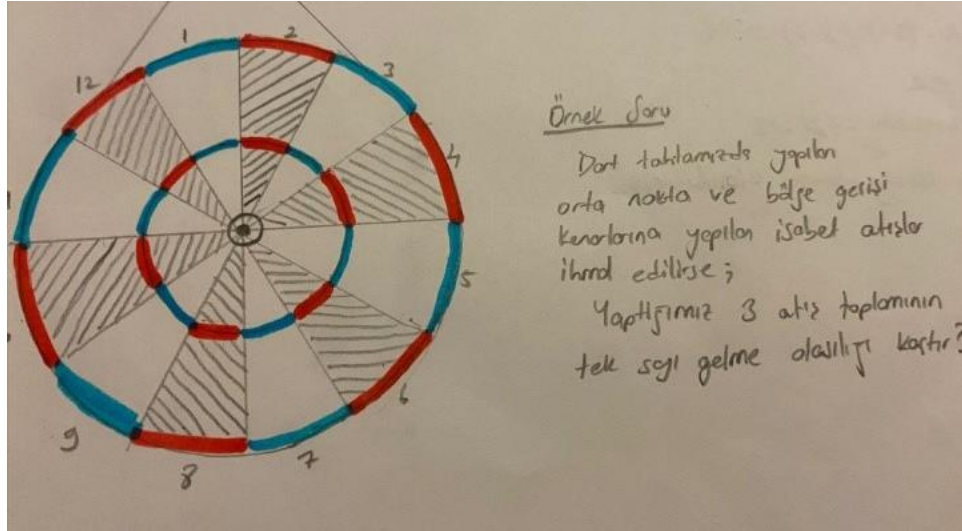 1
2
3
4
5
6
7
8
9
12
Örnek Soru
Dart tahtamızda yapılan
orta nokta ve bölge gerisi
kenarlarına yapılan isabet atışlar
ihmal edilirse;
Yaptığımız 3 atış toplamının
tek sayı gelme olasılığı kaçtır?